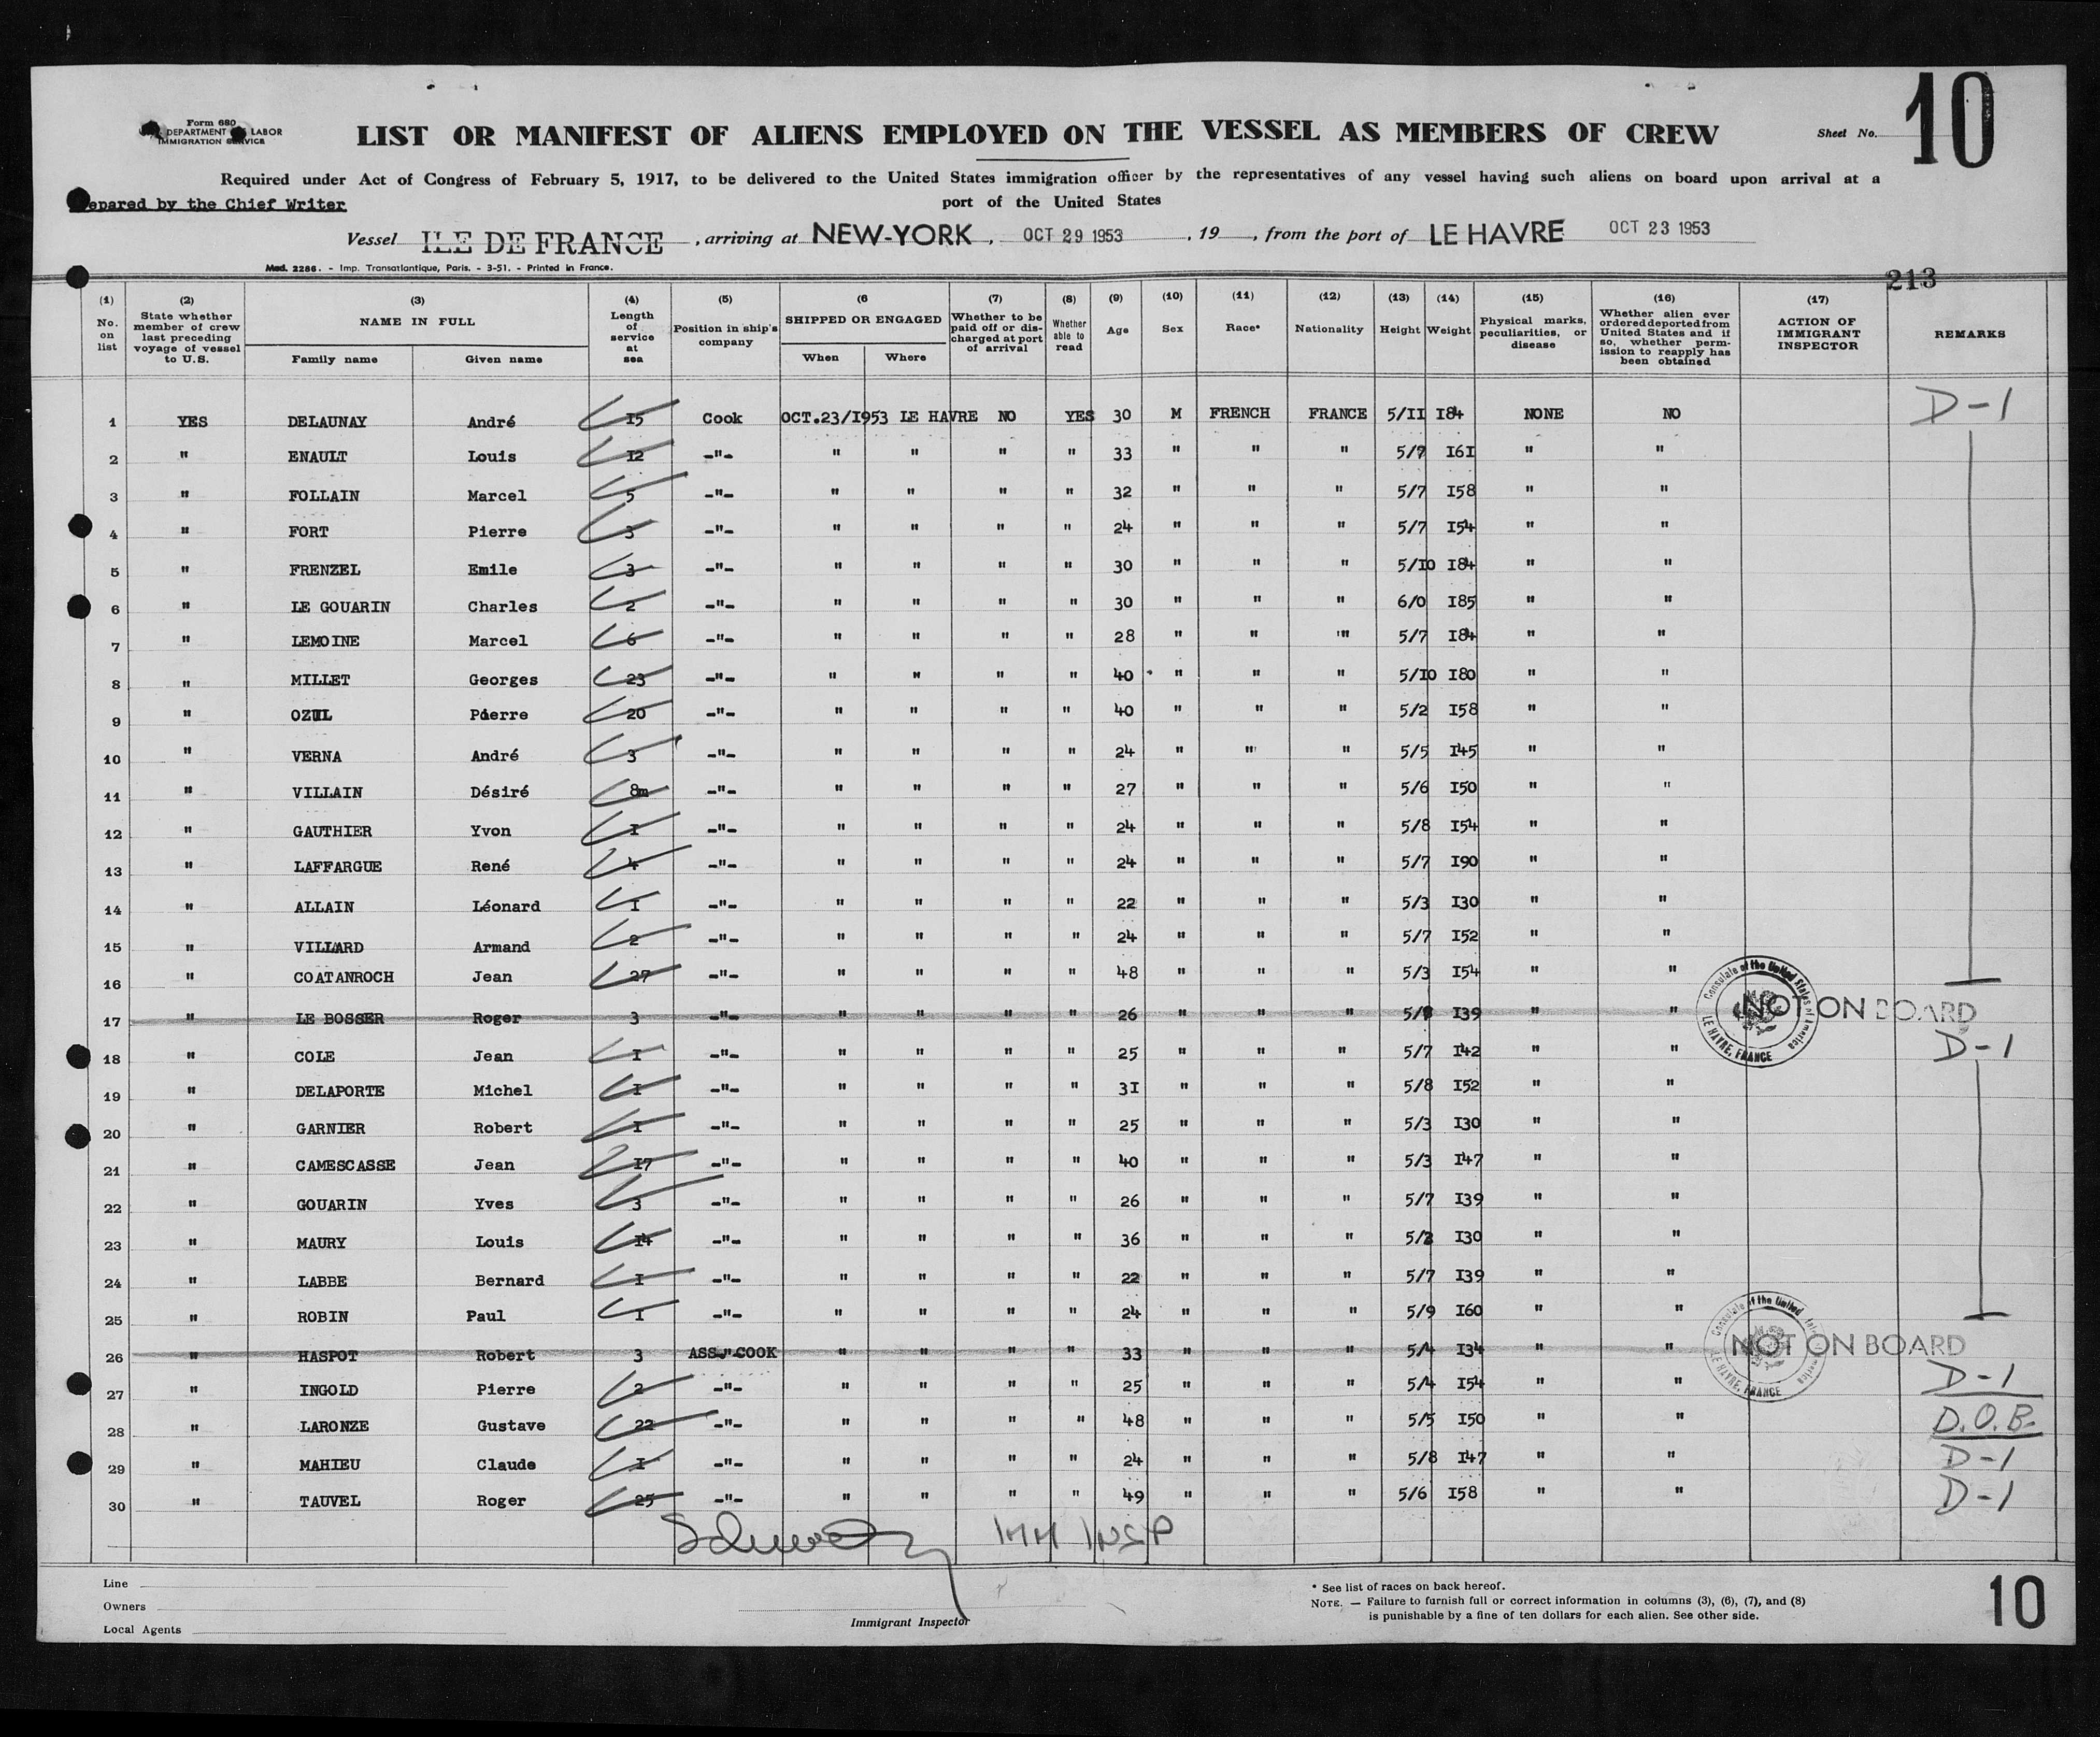 Form 680
DEPARTMENT LABOR
IMMIGRATION SERVICE
LIST OR MANIFEST OF ALIENS EMPLOYED ON THE VESSEL AS MEMBERS OF CREW
Sheet No. 10
Required under Act of Congress of February 5, 1917, to be delivered to the United States immigration officer by the representatives of any vessel having such aliens on board upon arrival at a
port of the United States
epared by the Chief Writer
Vessel ILE DE FRANCE, arriving at NEW-YORK, OCT 29 1953, 19, from the port of LE HAVRE OCT 23 1953
Mod. 2286. - Imp. Transatlantique, Paris. - 3-51. - Printed in France.
213
(1) No. on list
(2) State whether member of crew last preceding voyage of vessel to U.S.
(3) NAME IN FULL
Family name Given name
(4) Length of service at sea
(5) Position in ship's company
(6 SHIPPED OR ENGAGED
When Where
(7) Whether to be paid off or discharged at port of arrival
(8) Whether able to read
(9) Age
(10) Sex
(11) Race*
(12) Nationality
(13) Height
(14) Weight
(15) Physical marks, peculiarities, or disease
(16) Whether alien ever ordered deported from United States and if so, whether permission to reapply has been obtained
(17) ACTION OF IMMIGRANT INSPECTOR
REMARKS
1 YES DELAUNAY André 15 Cook OCT.23/1953 LE HAVRE NO YES 30 M FRENCH FRANCE 5/11 184 NONE NO D-1
2 " ENAULT Louis 12 -"- " " " " 33 " " " 5/7 161 " "
3 " FOLLAIN Marcel 5 -"- " " " " 32 " " " 5/7 158 " "
4 " FORT Pierre 3 -"- " " " " 24 " " " 5/7 154 " "
5 " FRENZEL Emile 3 -"- " " " " 30 " " " 5/10 184 " "
6 " LE GOUARIN Charles 2 -"- " " " " 30 " " " 6/0 185 " "
7 " LEMOINE Marcel 6 -"- " " " " 28 " " " 5/7 184 " "
8 " MILLET Georges 23 -"- " " " " 40 " " " 5/10 180 " "
9 " Pierre 20 -"- " " " " 40 " " " 5/2 158 " "
10 " VERNA André 3 -"- " " " " 24 " " " 5/5 145 " "
11 " VILLAIN Désiré 8m -"- " " " " 27 " " " 5/6 150 " "
12 " GAUTHIER Yvon 1 -"- " " " " 24 " " " 5/8 154 " "
13 " LAFFARGUE René 4 -"- " " " " 24 " " " 5/7 190 " "
14 " ALLAIN Léonard 1 -"- " " " " 22 " " " 5/3 130 " "
15 " VILLARD Armand 2 -"- " " " " 24 " " " 5/7 152 " "
16 " COATANROCH Jean 27 -"- " " " " 48 " " " 5/3 154 " "
17 " LE BOSSER Roger 3 -"- " " " " 26 " " " 139 " " NOT ON BOARD
18 " COLE Jean 1 -"- " " " " 25 " " " 5/7 142 " " D-1
19 " DELAPORTE Michel 1 -"- " " " " 31 " " " 5/8 152 " "
20 " GARNIER Robert 1 -"- " " " " 25 " " " 5/3 130 " "
21 " CAMESCASSE Jean 17 -"- " " " " 40 " " " 5/3 147 " "
22 " GOUARIN Yves 3 -"- " " " " 26 " " " 5/7 139 " "
23 " MAURY Louis 14 -"- " " " " 36 " " " 130 " "
24 " LABBE Bernard 1 -"- " " " " 22 " " " 5/7 139 " "
25 " ROBIN Paul 1 -"- " " " " 24 " " " 5/9 160 " "
26 " HASPOT Robert 3 ASS.COOK " " " " 33 " " " 5/4 134 " " NOT ON BOARD
27 " INGOLD Pierre 2 -"- " " " " 25 " " " 5/4 154 " " D-1
28 " LARONZE Gustave 22 -"- " " " " 48 " " " 5/5 150 " " D.O.B.
29 " MAHIEU Claude 1 -"- " " " " 24 " " " 5/8 147 " " D-1
30 " TAUVEL Roger 25 -"- " " " " 49 " " " 5/6 158 " " D-1
Consulate of the United States of America
LE HAVRE, FRANCE
Consulate of the United
LE HAVRE, FRANCE
IMM INSP
Line
Owners
Local Agents
Immigrant Inspector
* See list of races on back hereof.
NOTE. — Failure to furnish full or correct information in columns (3), (6), (7), and (8)
is punishable by a fine of ten dollars for each alien. See other side.
10